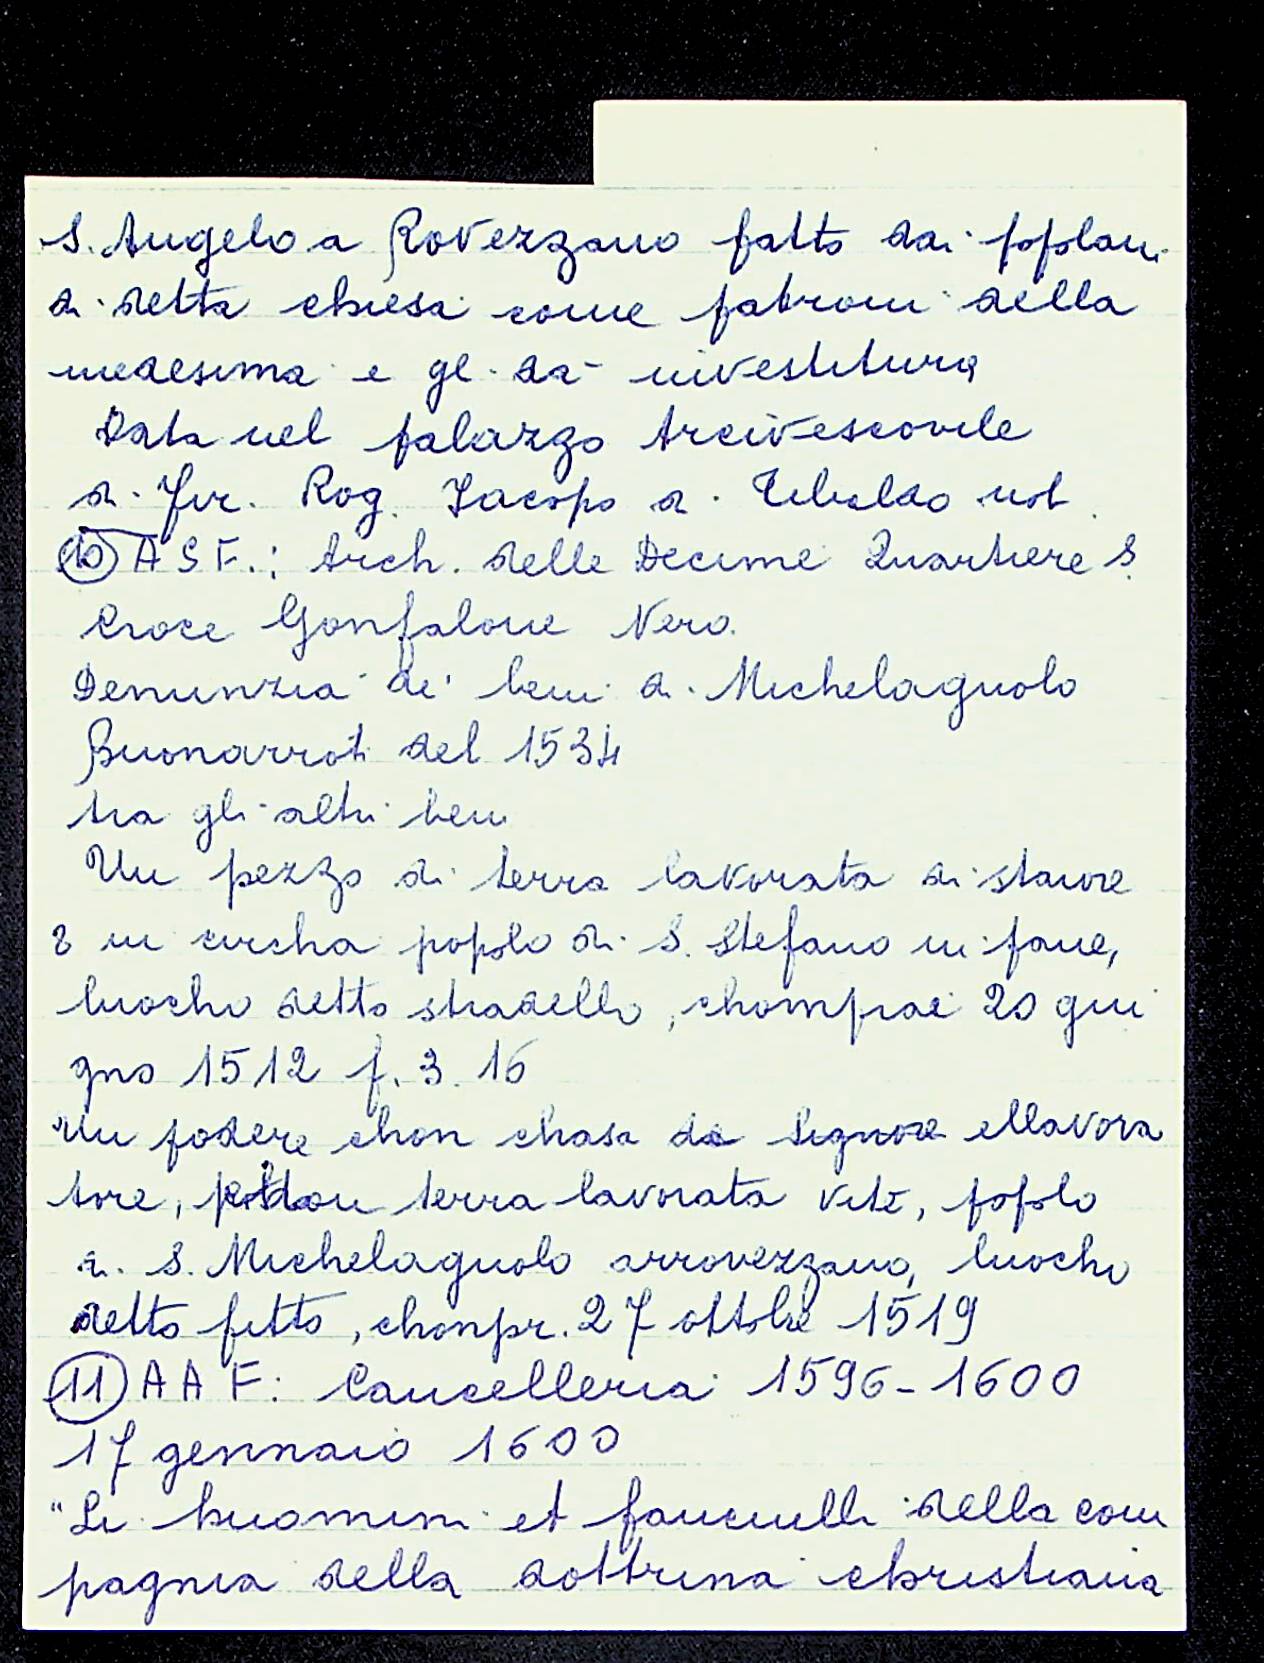 S. Angelo a Rovezzano fatto dai popolani
di detta chiesa come patroni della
medesima e gl. dà investitura
Data nel palazzo Arcivescovile
di Fir. Rog. Iacopo di Tebaldo not.
(10) A S F.: Arch. delle Decime Quartiere S.
Croce Gonfalone Nero.
Denunzia de' beni di Michelagnolo
Buonarroti del 1534
tra gli altri beni
Un pezzo di terra lavorata di staiore
8 in circha popolo di S. Stefano in pane,
luocho detto stradello, chomprai 20 giu
gno 1512 f. 3. 16
Un podere chon chasa da Signore ellavora
tore, terra lavorata vite, popolo
di S. Michelagnolo arrovezzano, luocho
detto fitto, chonpr. 27 ottobre 1519
(11) A A F: Cancelleria 1596-1600
17 gennaio 1600
"Li huomini et fanciulli della com
pagnia della dottrina christiana